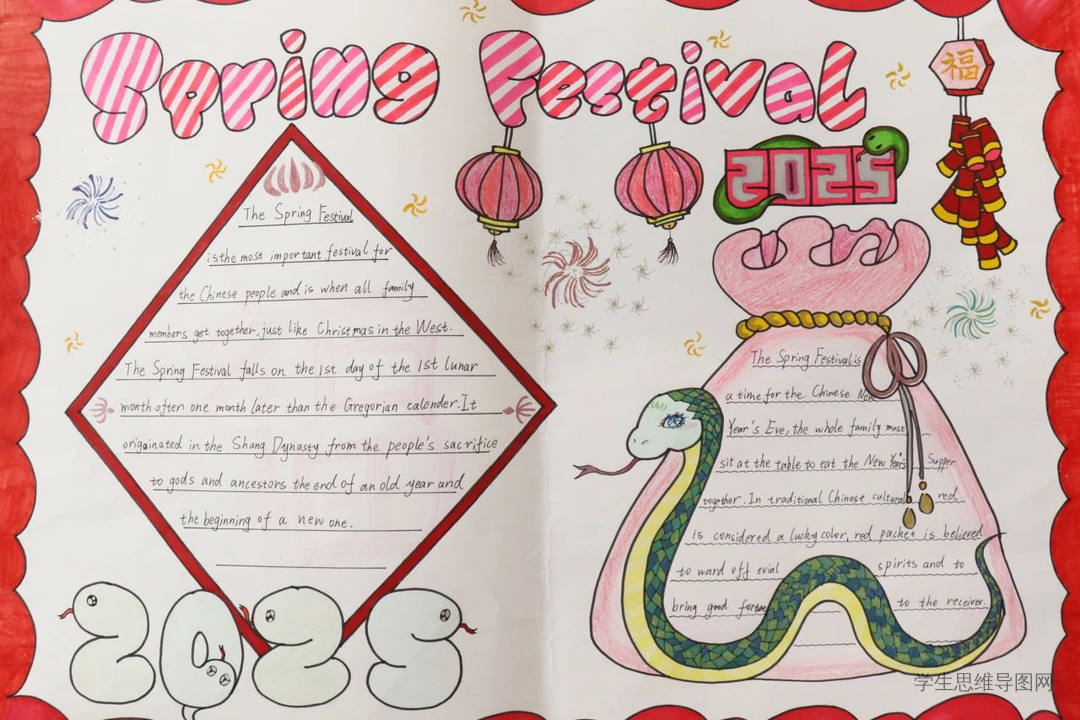 Spring Festival
福
2025
The Spring Festival
is the most important festival for
the Chinese people and is when all family
members get together, just like Christmas in the West.
The Spring Festival falls on the 1st day of the 1st lunar
month often one month later than the Gregorian calender. It
origainated in the Shang Dynasty from the people's sacrifice
to gods and ancestors the end of an old year and
the beginning of a new one.
The Spring Festival is
a time for the Chinese New
Year's Eve, the whole family must
sit at the table to eat the New Year's Supper
together. In traditional Chinese cultural red
is considered a lucky color, red packet is believed
to ward off evial spirits and to
bring good fortune to the receiver.
2025
学生思维导图网